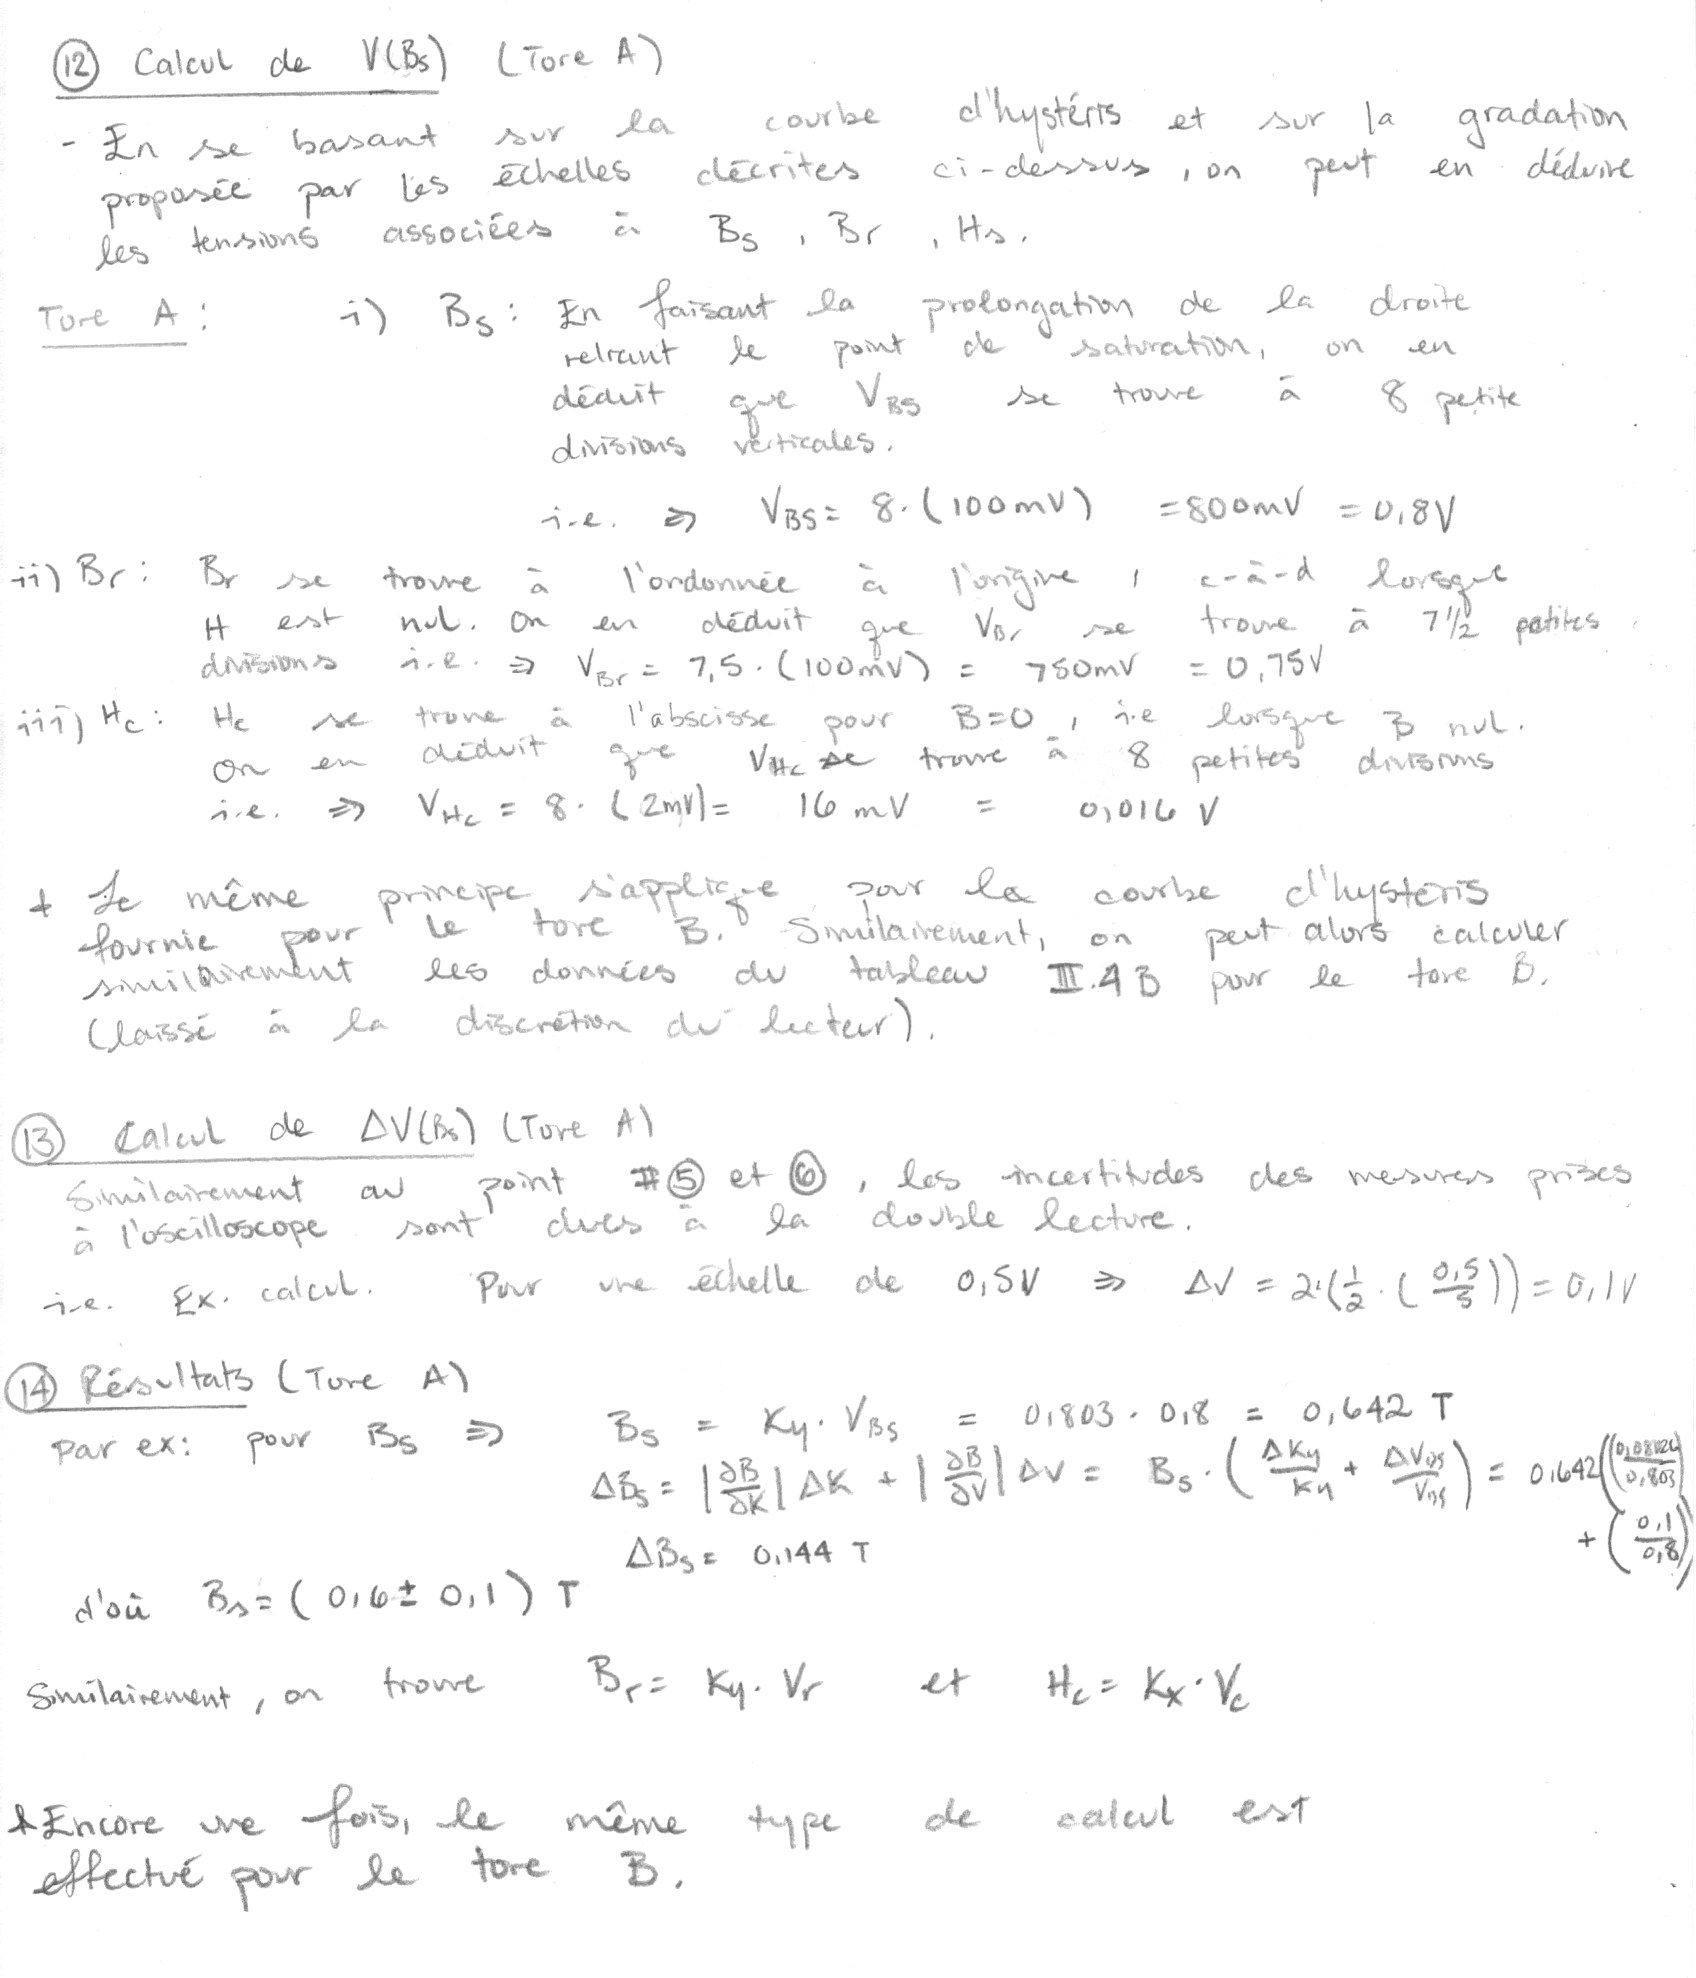 ⑫ Calcul de V(Bs) (Tore A)
- En se basant sur la courbe d'hystéris et sur la gradation
proposée par les échelles décrites ci-dessus, on peut en déduire
les tensions associées à Bs, Br, Hs.
Tore A: i) Bs: En faisant la prolongation de la droite
relrant le point de saturation, on en
déduit que VBS se trouve à 8 petite
divisions verticales.
i.e. ⇒ VBS = 8·(100mV) = 800mV = 0,8V
ii) Br: Br se trouve à l'ordonnée à l'origine, c-à-d lorsque
H est nul. On en déduit que VBr se trouve à 7 1/2 petites
divisions i.e. ⇒ VBr = 7,5·(100mV) = 750mV = 0,75V
iii) Hc: Hc se trouve à l'abscisse pour B=0, i.e lorsque B nul.
On en déduit que VHc se trouve à 8 petites divisions
i.e. ⇒ VHc = 8·(2mV) = 16 mV = 0,016 V
* Le même principe s'applique pour la courbe d'hysteris
fournie pour le tore B. Similairement, on peut alors calculer
similairement les données du tableau III.4B pour le tore B.
(laissé à la discrétion du lecteur).
⑬ Calcul de ΔV(Bs) (Tore A)
Similairement au point #⑤ et ⑥, les incertitudes des mesures prises
à l'oscilloscope sont dues à la double lecture.
i.e. Ex. calcul. Pour une échelle de 0,5V ⇒ ΔV = 2·(1/2·(0,5/5)) = 0,1V
⑭ Résultats (Tore A)
Par ex: pour Bs ⇒ Bs = Ky·VBS = 0,803·0,8 = 0,642 T
ΔBs = |∂B/∂K| ΔK + |∂B/∂V| ΔV = Bs·(ΔKy/Ky + ΔVBS/VBS) = 0,642((0,08026/0,803)
+ (0,1/0,8))
ΔBs = 0,144 T
d'où Bs = (0,6 ± 0,1) T
Similairement, on trouve Br = Ky·Vr et Hc = Kx·Vc
* Encore une fois, le même type de calcul est
effectué pour le tore B.